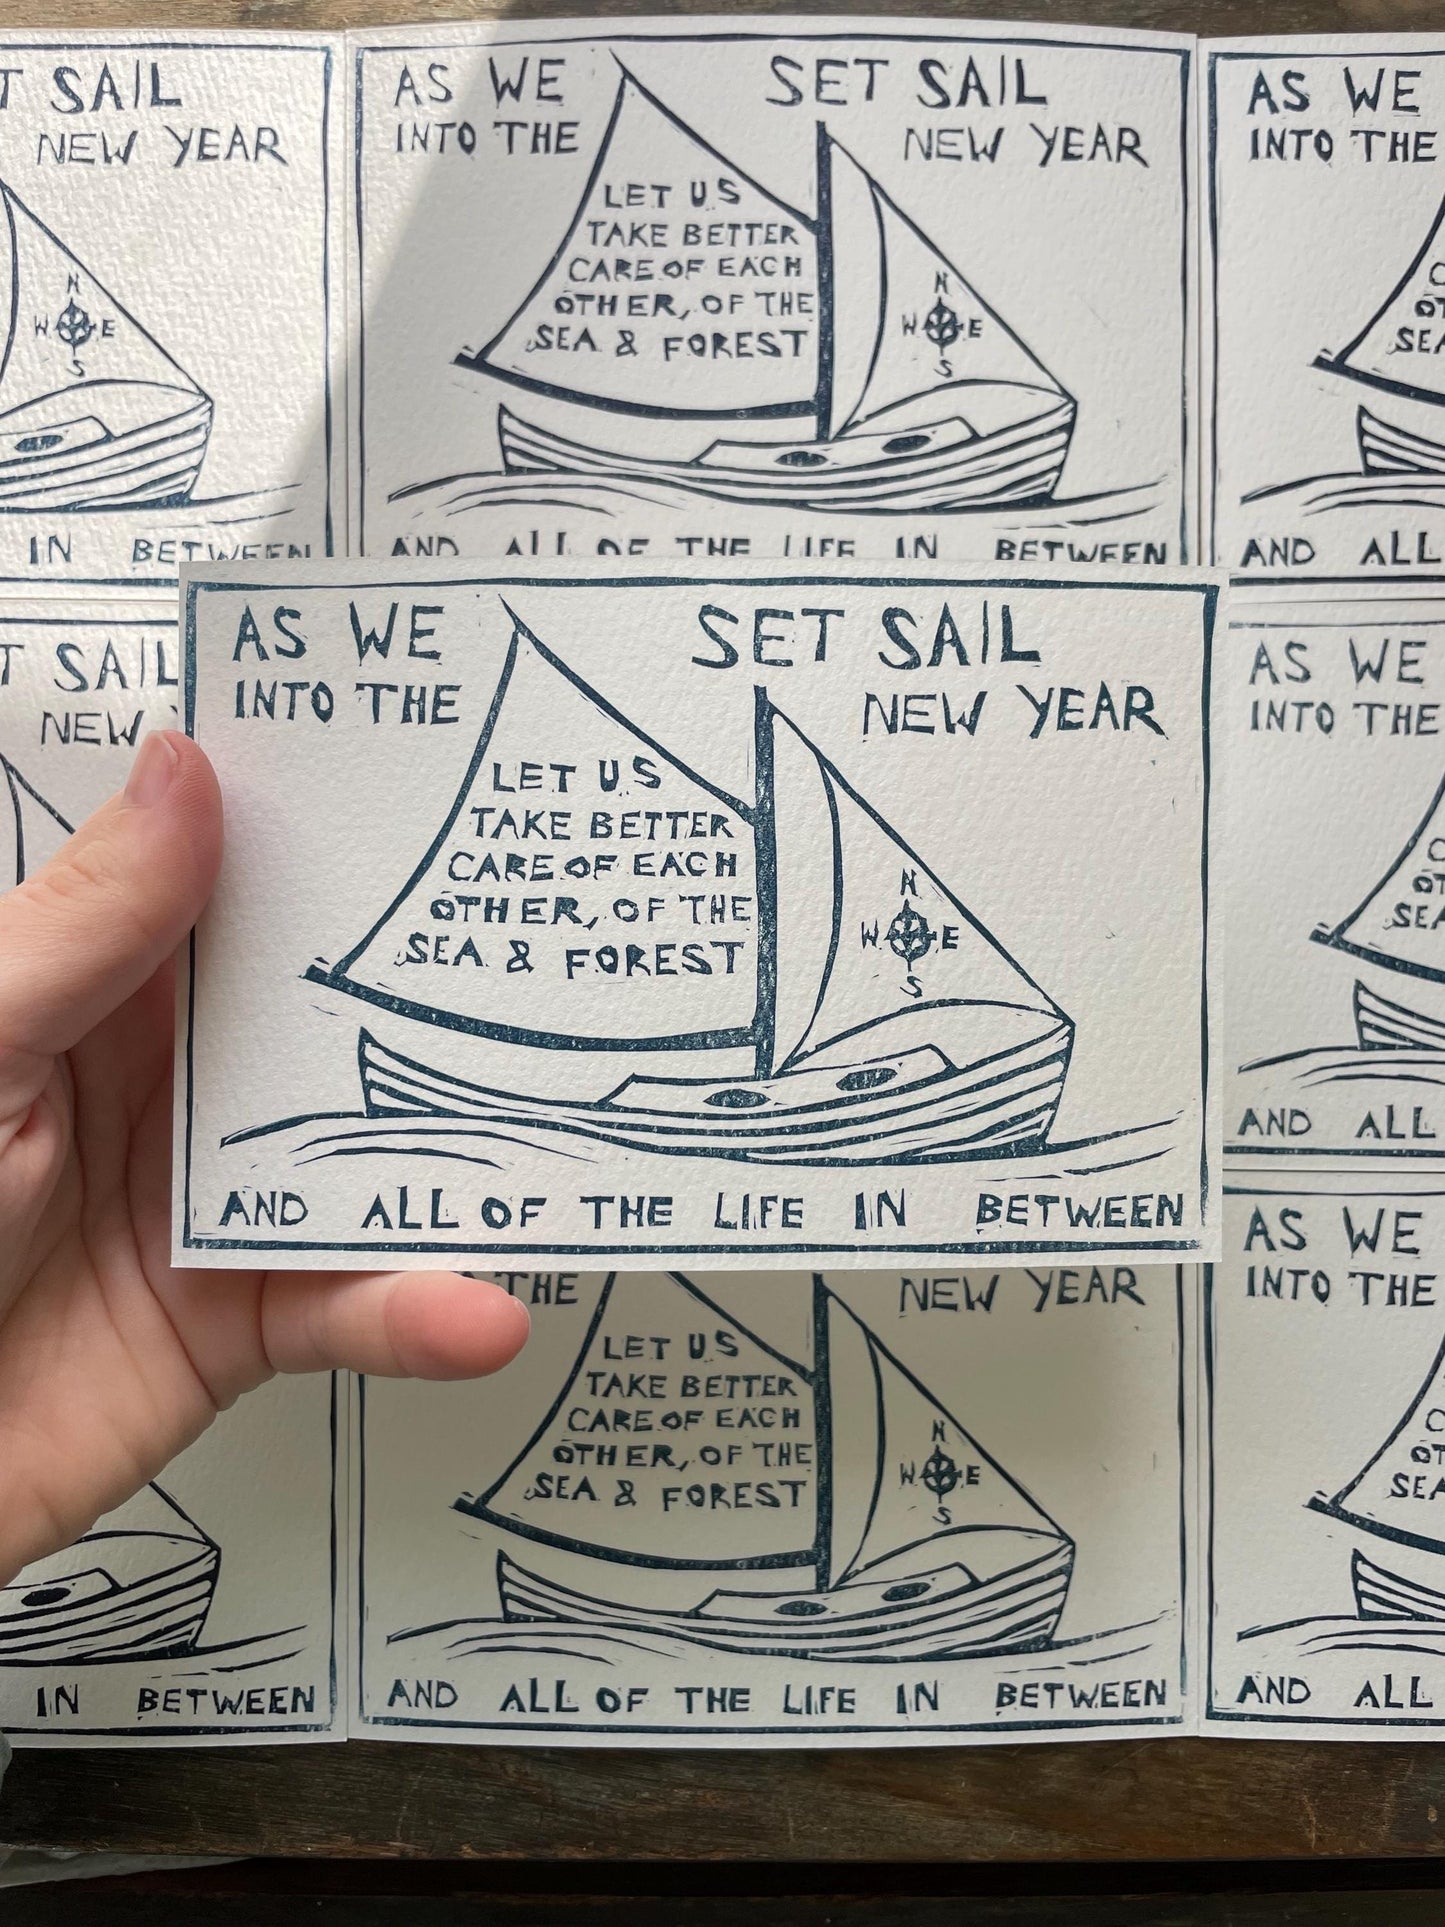 SET SAIL
NEW YEAR
N
W E
S
IN BETWEEN
AS WE SET SAIL
INTO THE NEW YEAR
LET US
TAKE BETTER
CARE OF EACH
OTHER, OF THE
SEA & FOREST
N
W E
S
AND ALL OF THE LIFE IN BETWEEN
AS WE
INTO THE
SEA
AND ALL
SAIL
NEW
AS WE SET SAIL
INTO THE NEW YEAR
LET US
TAKE BETTER
CARE OF EACH
OTHER, OF THE
SEA & FOREST
N
W E
S
AND ALL OF THE LIFE IN BETWEEN
AS WE
INTO THE
SEA
AND ALL
IN BETWEEN
THE NEW YEAR
LET US
TAKE BETTER
CARE OF EACH
OTHER, OF THE
SEA & FOREST
N
W E
S
AND ALL OF THE LIFE IN BETWEEN
AS WE
INTO THE
SEA
AND ALL